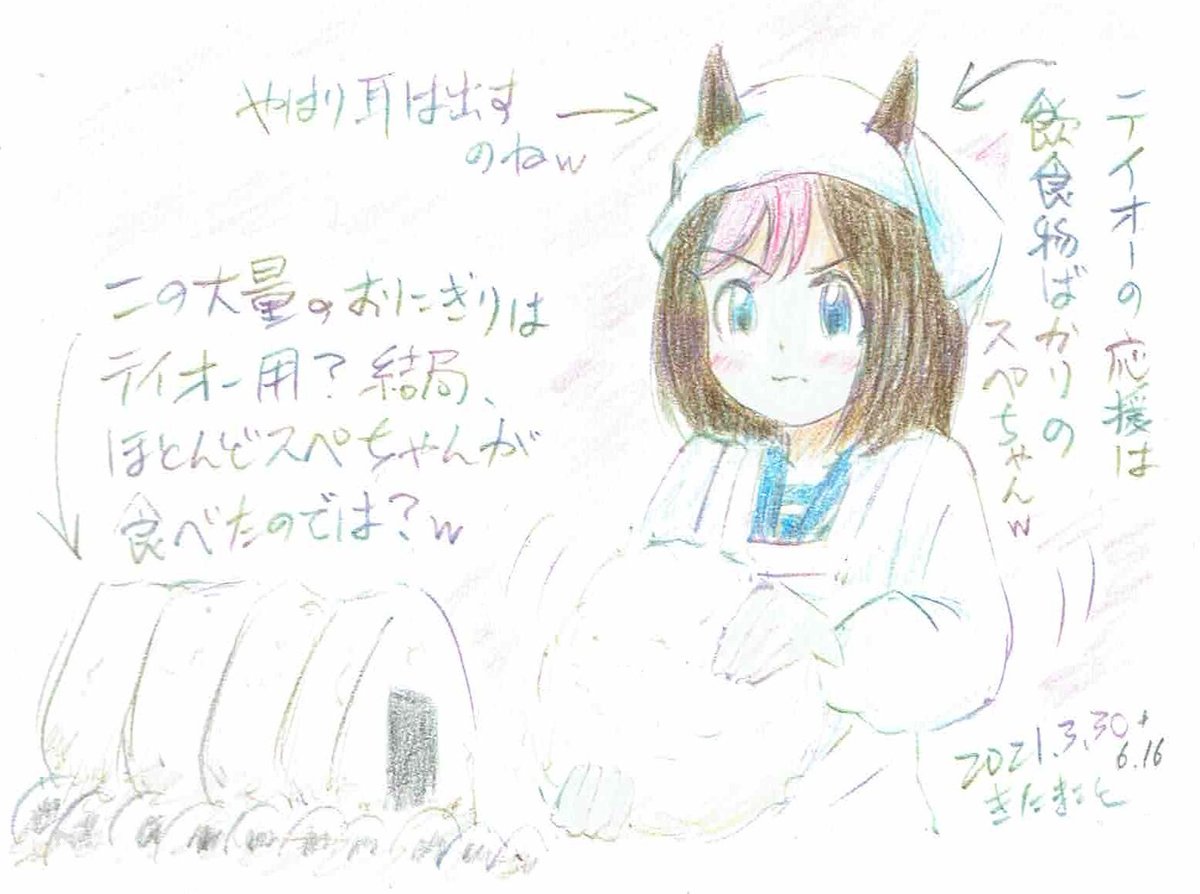 やはり耳は出す
のねw
テイオーの応援は
飲食物ばかりの
スペちゃんw
この大量のおにぎりは
テイオー用?結局、
ほとんどスペちゃんが
食べたのでは?w
2021.3.30+
6.16
きたまこと